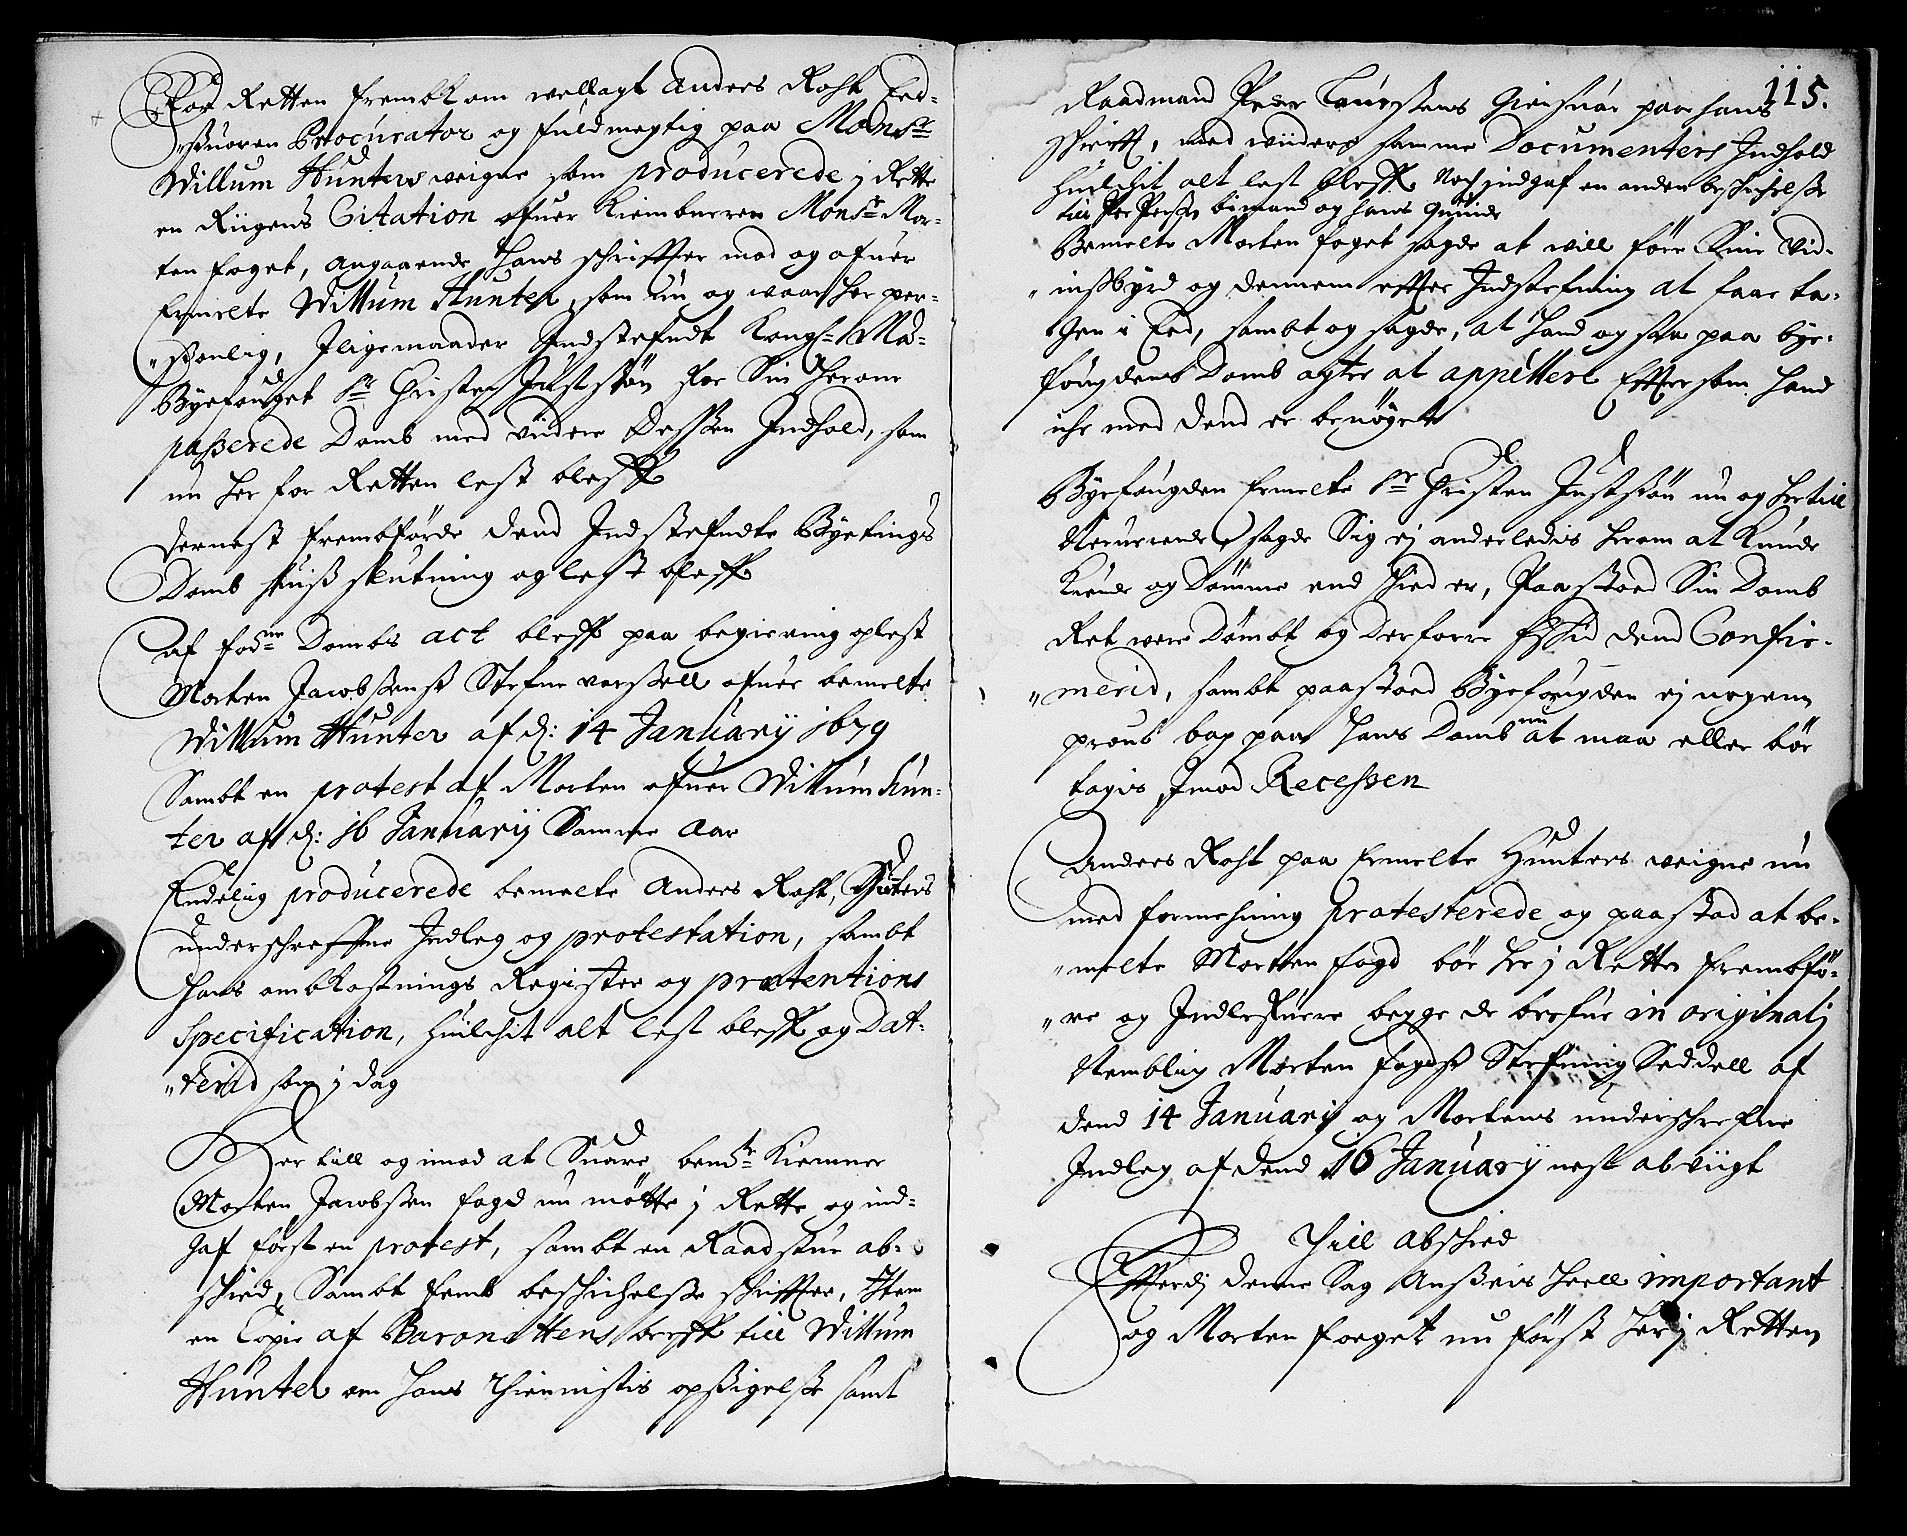 For Retten frembkom wellagt Anders Rosk Eed-
„suoren Procurator og fuldmegtig paa Monsr
Willum Hunters weigne som producerede j Rette
en Riigens Citation ofuer Kiembneren Monsr Mor-
ten foget, angaaende hans schriffter mod og ofuer
Ermelte Willum Hunter, som nu og waar her per-
„sonlig, Iligemaader Indstefndt Kongl. Ma-
Byefouget Sr Christen Justsøn for Sin herom
passerede Domb med videre Dessen Indhold, som
nu her for Retten lest bleff
Dernest frembførde dend Indstefndte Byetings
Domb huis slutning oglest bleff
Af fodne Dombs act bleff paa begiering oplest
Morten Jacobsens Stefne varsell ofuer bemelte
Willum Hunter af d: 14 Januarij 1679
Sambt en protest af Morten ofuer Willum Hun-
ter af d: 16 Januarij Samme Aar
Endelig producerede bemelte Anders Rosk, Hunters
underschreffne Indleg og protestation, sambt
hans ombkostnings Register og prætentions
Specification, huilchit alt lest bleff og Dat-
„terid som j dag
Her till og imod at Suare, bemte Kiemner
Morten Jacobsen fogd nu møtte j Rette og ind-
gaf først en protest, sambt en Raadstue ab-
schied, Sambt femb beschichelse schriffter, Item
en Copie af Baronettens breff till Willum
Hunter om hans thiennistis opsigelse samt
115.
Raadmand Peder Laurssens Giensuar paa hans
schrifft, med widere samme Documenters Indhold
huilchit alt lest bleff Noch indgaf en anden beschichelse
till Per Persen bimand og hans quinde
Bemelte Morten foget sagde at will føre Sine Vid-
„insbyrd og dennem effter Indstefning at faae ta-
gen i Eed, sambt og sagde, at hand og saa paa bye-
fougdens Domb agter at appellere Efftersom hand
iche med dend er benøyet
Byefougden Ermelte Sr Christen Justsøn nu og hertill
Neruerende, sagde Sig ej anderledis herom at Kunde
Kiende og Dømme end scheed er, Paastoed Sin Domb
Ret were Dømbt og Derforre bleff dend Confir-
„merid, sambt paastoed Byefougden ej nogen
proub bag paa hans Domb nu at maa eller bør
tagis Imod Recessen
Anders Rosk paa Ermelte Hunters weigne nu
med formehning protesterede og paastod at be-
„melte Morten fogd bør her j Rette frembfø-
„re og Indlefuere begge de brefue in originalj
Nemblig Morten fogds Stefning Seddell af
dend 14 Januarij og Mortens underschrefne
Indleg af dend 16 Januarij nest abviigt
Till Abschied
Effterdj denne Sag Ansees heell important
og Morten foeget nu først her j Retten